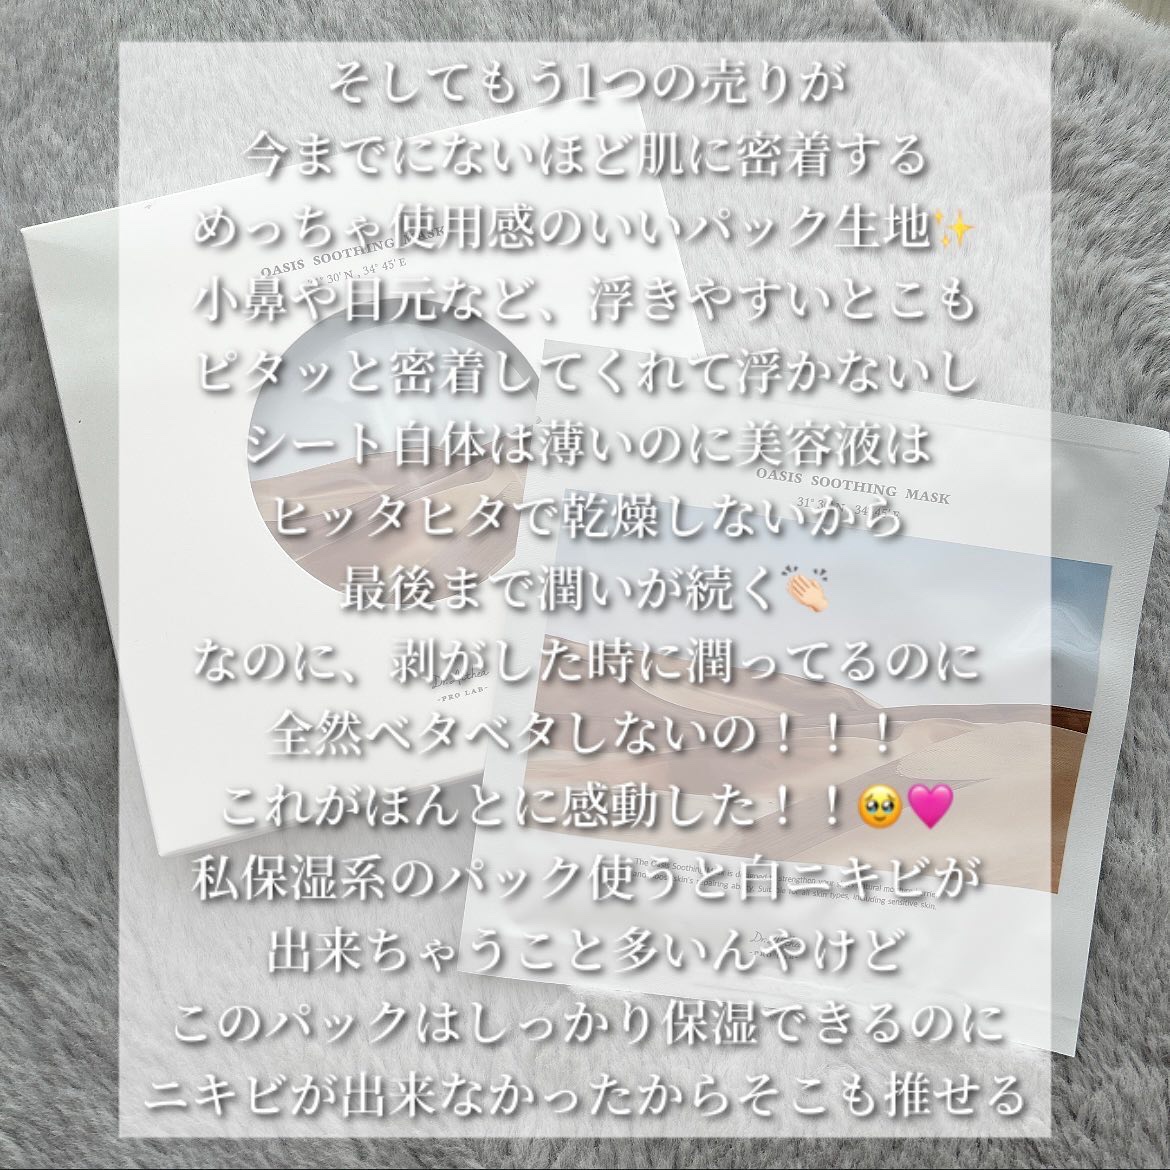 そしてもう1つの売りが
今までにないほど肌に密着する
めっちゃ使用感のいいパック生地✨
小鼻や目元など、浮きやすいとこも
ピタッと密着してくれて浮かないし
シート自体は薄いのに美容液は
ヒッタヒタで乾燥しないから
最後まで潤いが続く👏🏻
なのに、剥がした時に潤ってるのに
全然ベタベタしないの！！！
これがほんとに感動した！！🥹🩷
私保湿系のパック使うと白ニキビが
出来ちゃうこと多いんやけど
このパックはしっかり保湿できるのに
ニキビが出来なかったからそこも推せる
OASIS SOOTHING MASK
30' N , 34° 45' E
-PRO LAB-
OASIS SOOTHING MASK
31° 30' N , 34° 45' E
The Oasis Soothing Mask is designed to strengthen your skin's natural moisture barrier
and boost skin's repairing ability. Suitable for all skin types, including sensitive skin.